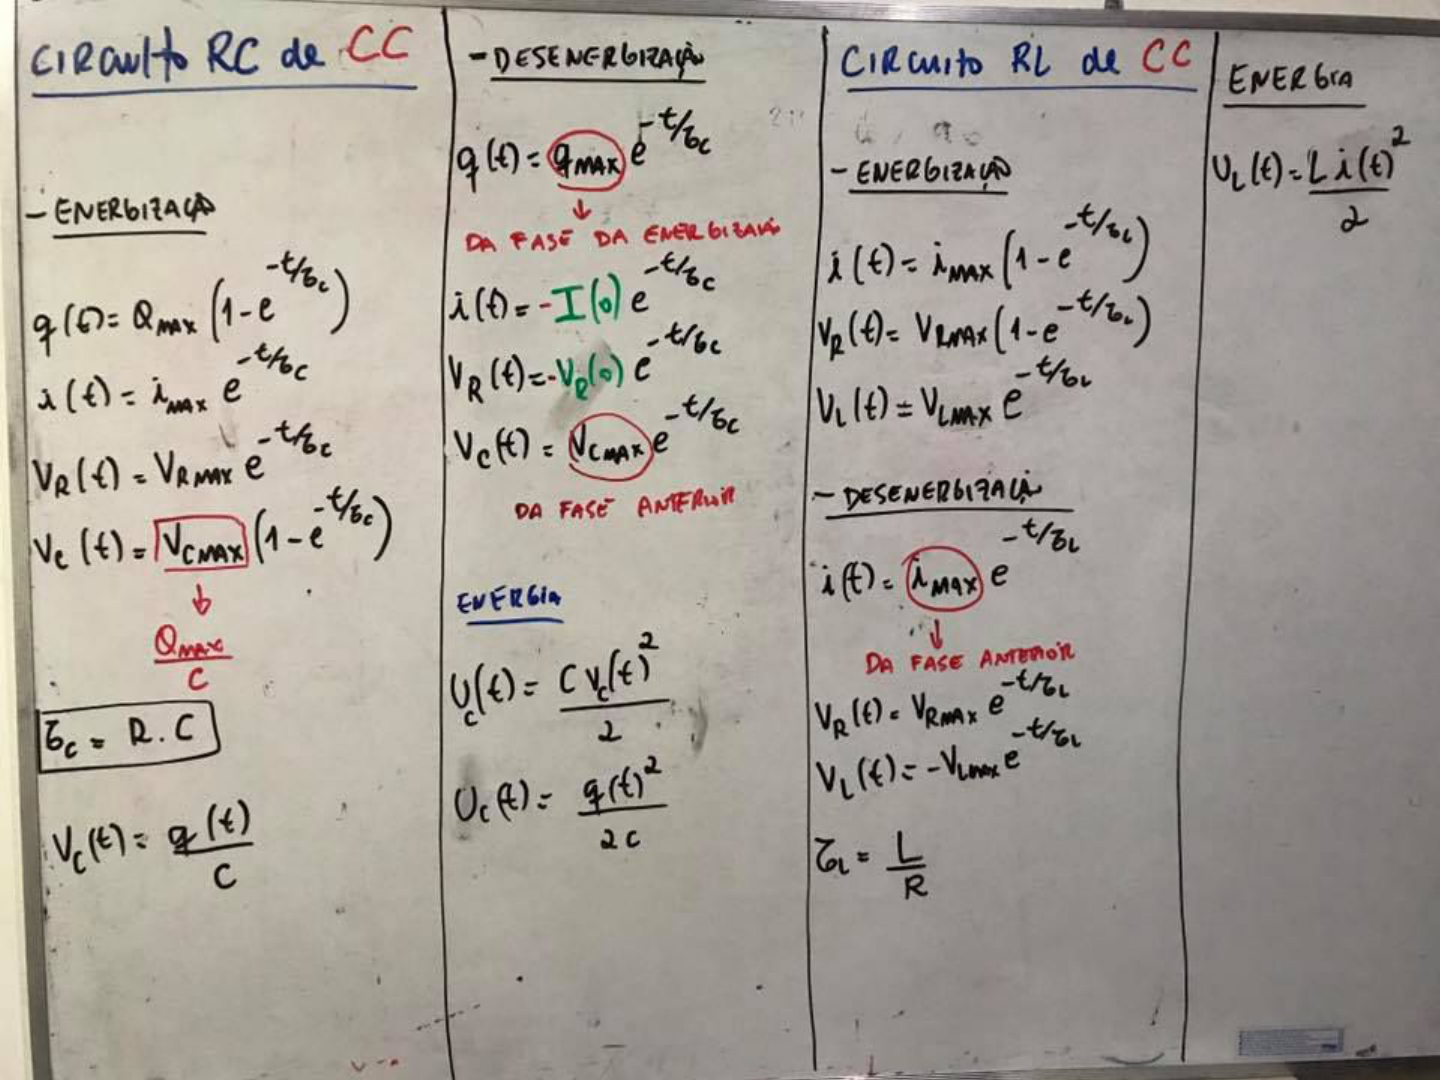 CIRCUITO RC de CC
- ENERGIZAÇÃO
q(t) = QMAX (1 - e^-t/τc)
i(t) = iMAX e^-t/τc
VR(t) = VRMAX e^-t/τc
Vc(t) = VCMAX (1 - e^-t/τc)
↓
QMAX/C
τc = R.C
Vc(t) = q(t)/C
- DESENERGIZAÇÃO
q(t) = qMAX e^-t/τc
↓
DA FASE DA ENERGIZAÇÃO
i(t) = -I(0) e^-t/τc
VR(t) = -VR(0) e^-t/τc
Vc(t) = VCMAX e^-t/τc
DA FASE ANTERIOR
ENERGIA
Uc(t) = C Vc(t)²/2
Uc(t) = q(t)²/2C
CIRCUITO RL de CC
- ENERGIZAÇÃO
i(t) = iMAX (1 - e^-t/τL)
VR(t) = VRMAX (1 - e^-t/τL)
VL(t) = VLMAX e^-t/τL
- DESENERGIZAÇÃO
i(t) = iMAX e^-t/τL
↓
DA FASE ANTERIOR
VR(t) = VRMAX e^-t/τL
VL(t) = -VLMAX e^-t/τL
τL = L/R
ENERGIA
UL(t) = L i(t)²/2